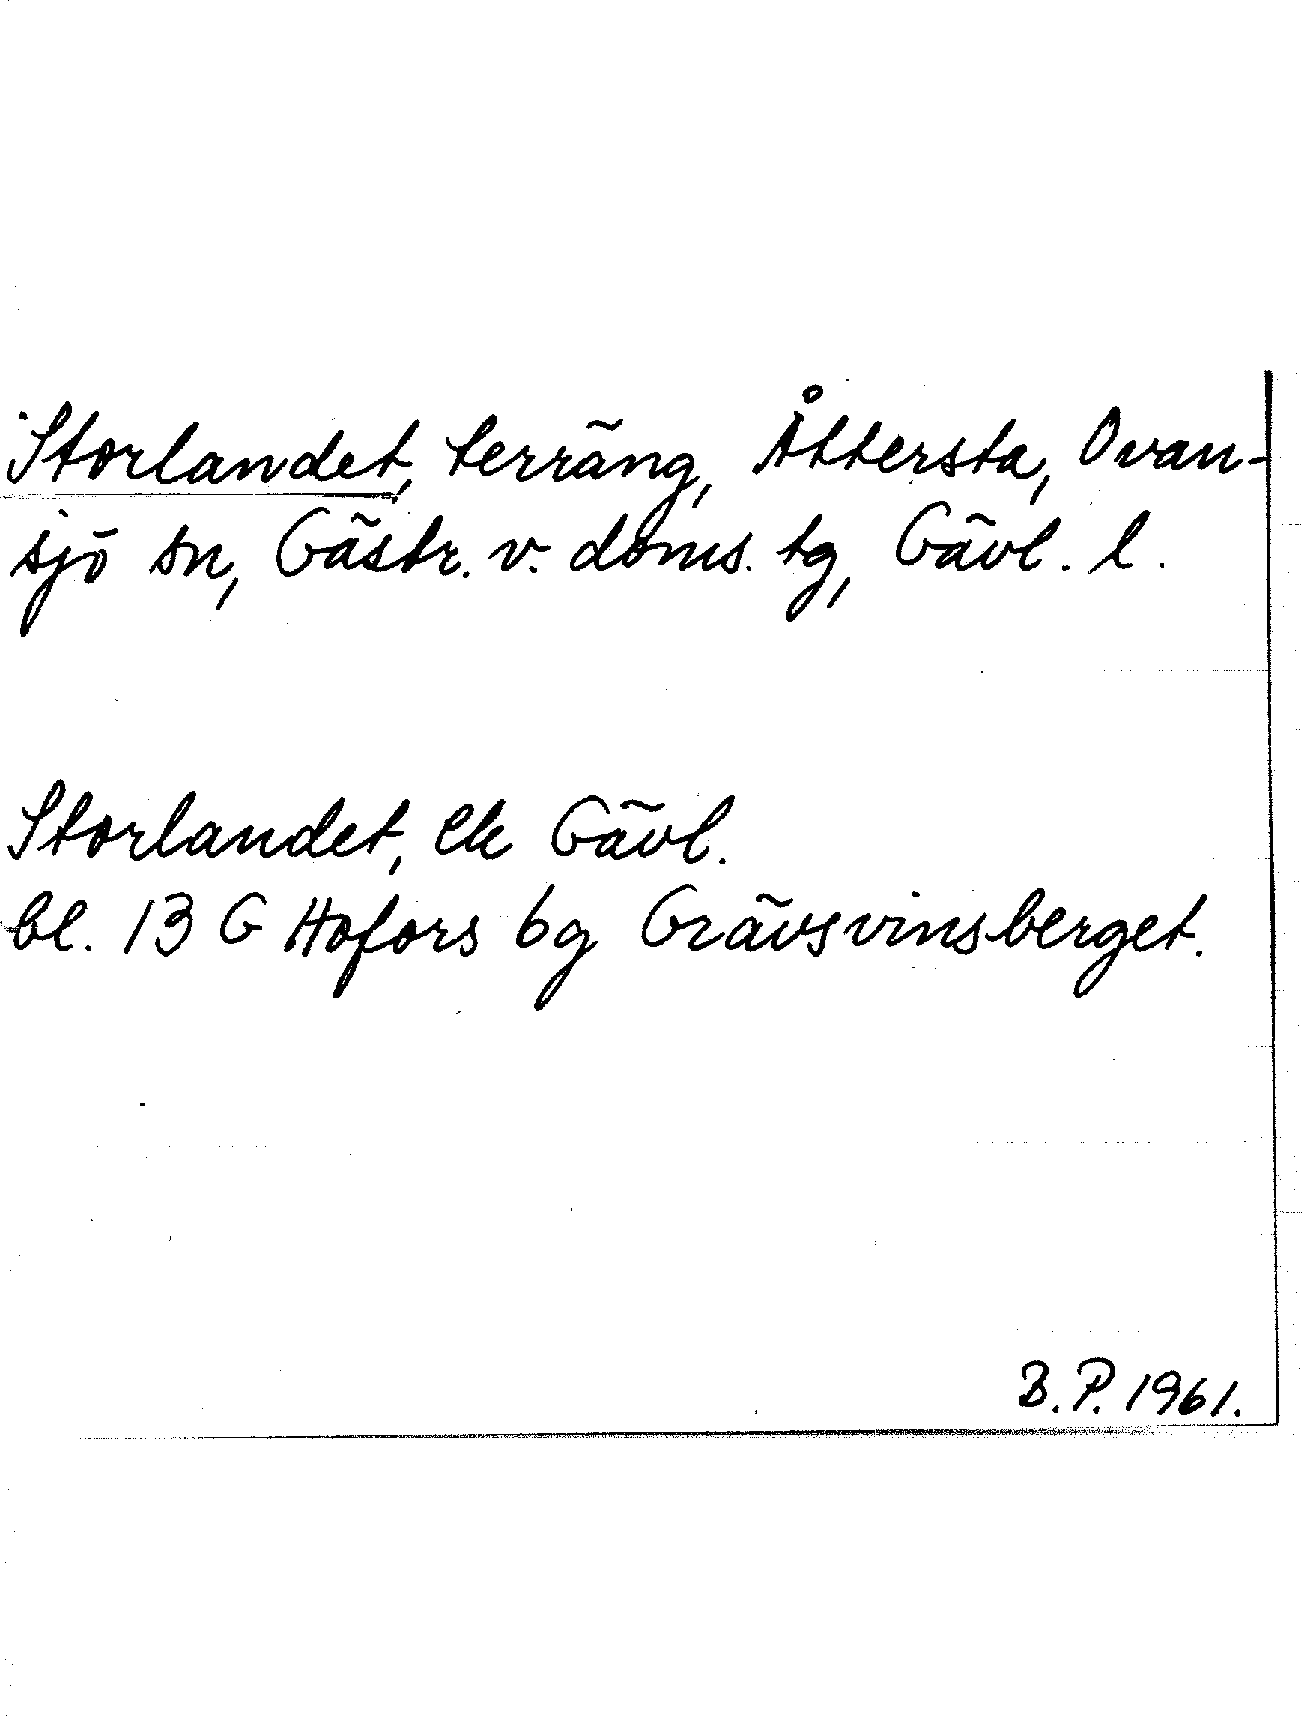 Storlandet, terräng, Åttersta, Ovan-
sjö sn, Gästr. v. doms. tg, Gävl. l.
Storlandet, ek Gävl.
bl. 13 G Hofors 6g Grävsvinsberget.
B.P. 1961.